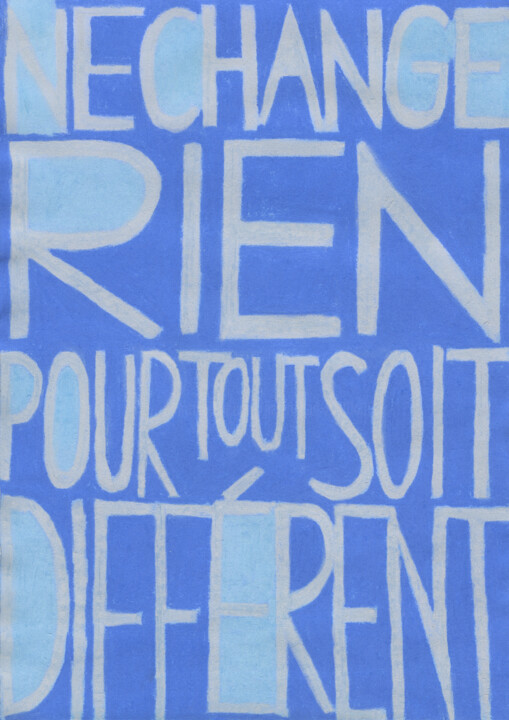 NE CHANGE
RIEN
POUR TOUT SOIT
DIFFÉRENT